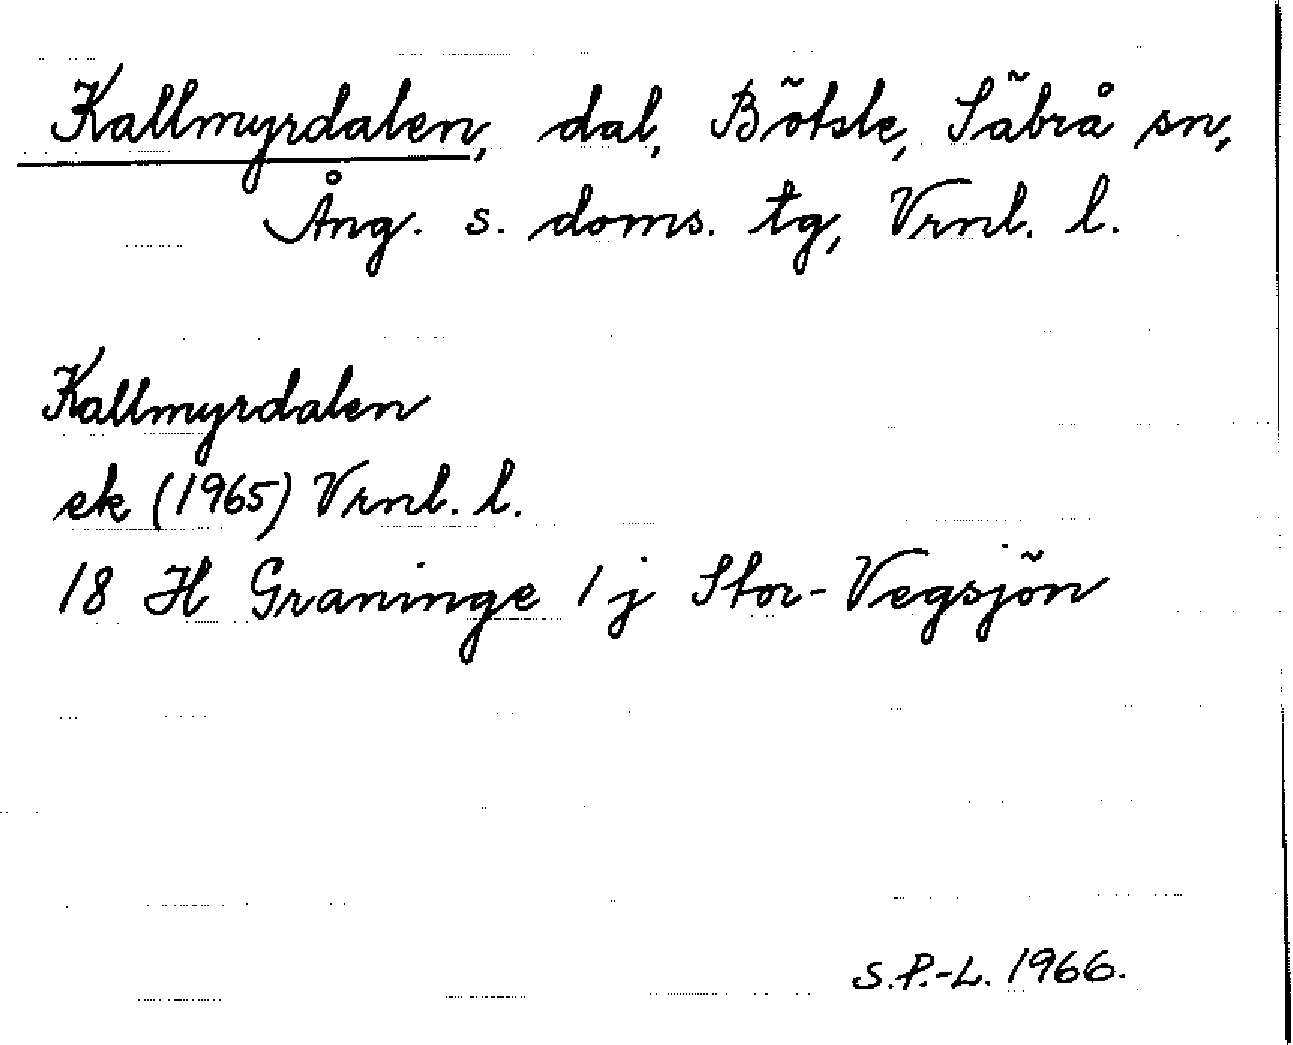 Kallmyrdalen, dal, Bötsle, Säbrå sn,
Ång. s. doms. tg, Vrnl. l.
Kallmyrdalen
ek (1965) Vrnl. l.
18 H Graninge 1 j Stor-Vegsjön
S.P.-L. 1966.